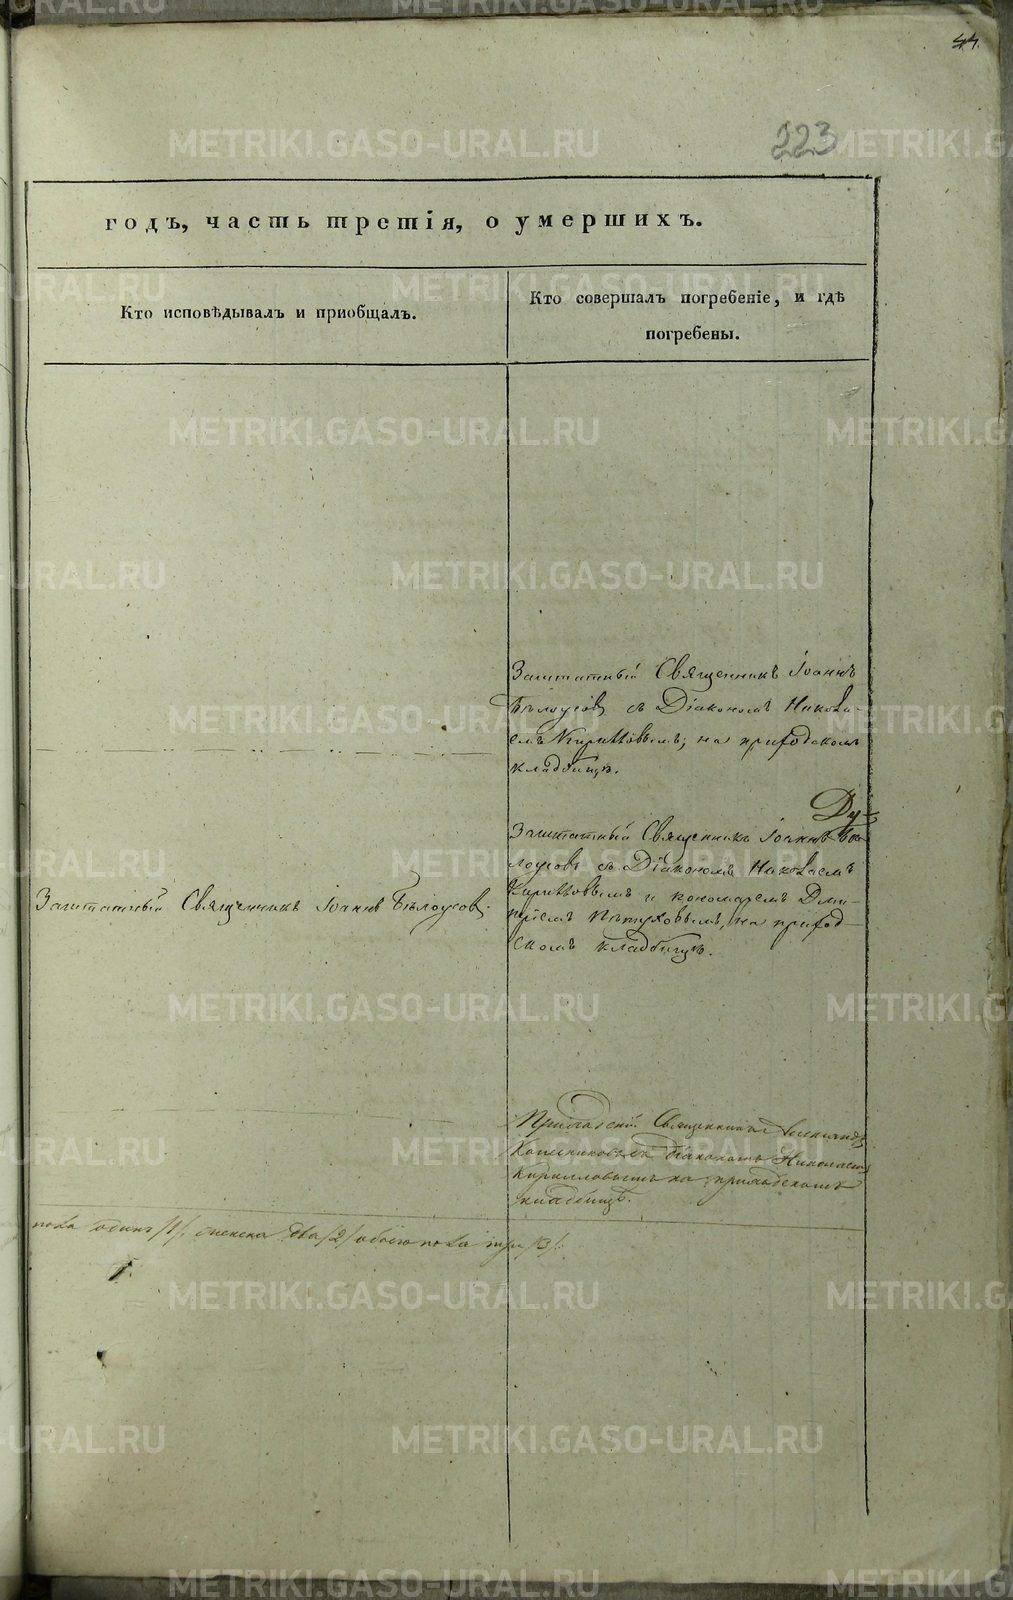 44.
223
годъ, часть третія, о умершихъ.
Кто исповѣдывалъ и приобщалъ.
Кто совершалъ погребеніе, и гдѣ
погребены.
Заштатный Священникъ Іоаннъ
Бѣлоусовъ съ Діакономъ Никола-
емъ Кирилловымъ, на приходскомъ
кладбищѣ.
Заштатный Священникъ Іоаннъ Бѣ-
лоусовъ съ Діакономъ Николаемъ
Кирилловымъ и пономаремъ Дми-
тріемъ Пѣтуховымъ, на приход-
скомъ кладбищѣ.
Заштатный Священникъ Іоаннъ Бѣлоусовъ.
Приходскій Священникъ Александръ
съ Діакономъ Николаемъ
Кирилловымъ на приходскомъ
кладбищѣ.
пола одинъ /1/, женска два /2/ обоего пола три /3/.
METRIKI.GASO-URAL.RU